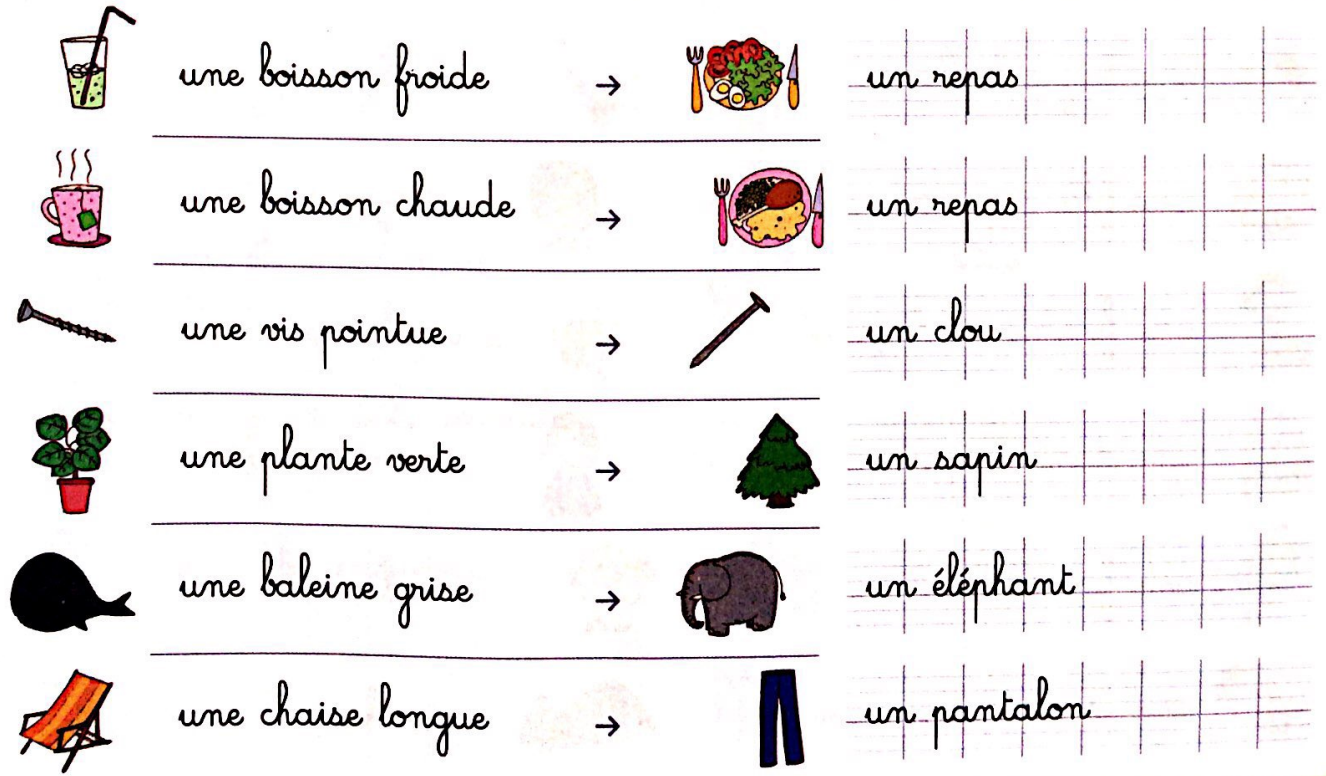 une boisson froide → un repas
une boisson chaude → un repas
une vis pointue → un clou
une plante verte → un sapin
une baleine grise → un éléphant
une chaise longue → un pantalon